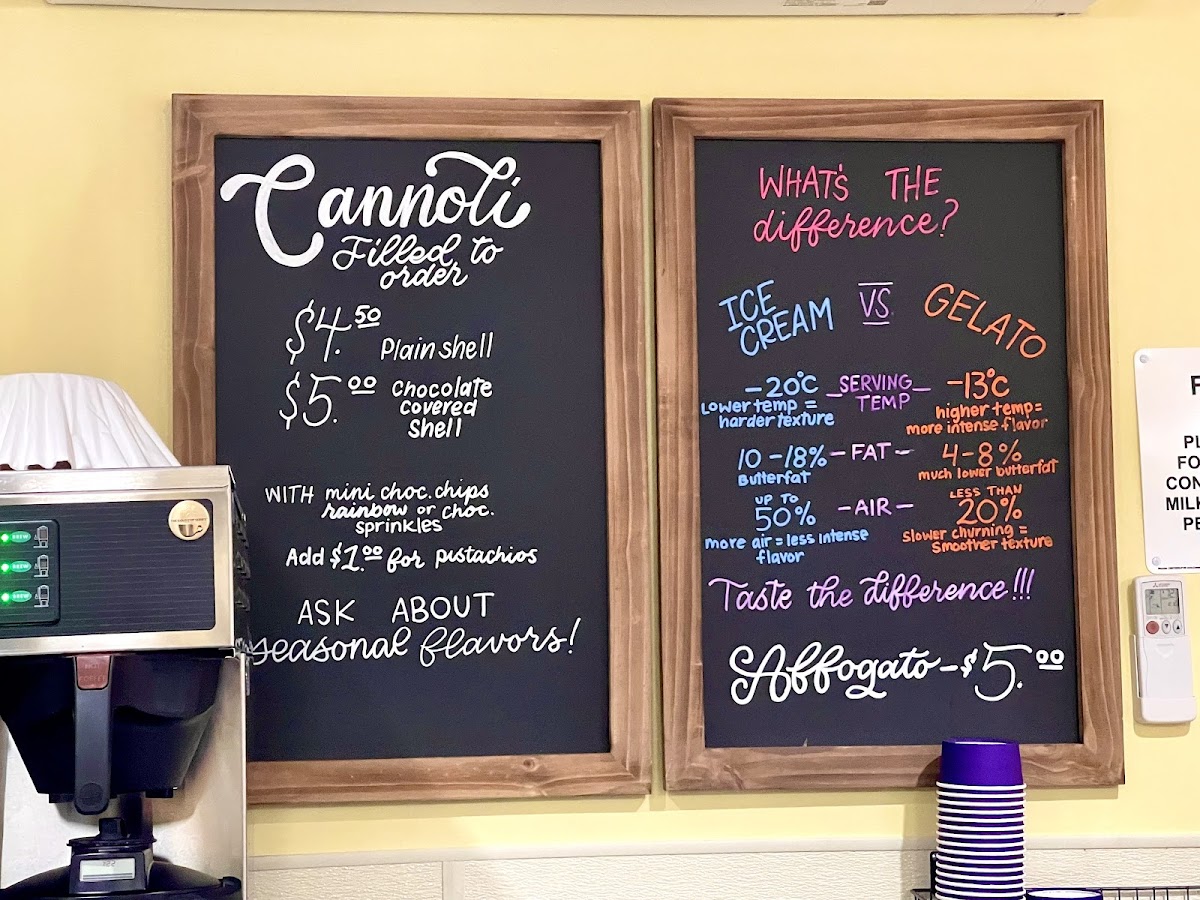 Cannoli
Filled to
order
$4.50 Plain shell
$5.00 Chocolate
covered
Shell
WITH mini choc. chips
rainbow or choc.
sprinkles
Add $1.00 for pistachios
ASK ABOUT
seasonal flavors!
WHAT'S THE
difference?
ICE CREAM VS. GELATO
-20°C - SERVING TEMP - -13°C
Lower temp =
harder texture
higher temp=
more intense flavor
10-18% - FAT - 4-8%
Butterfat
much lower butterfat
UP TO
50% - AIR - LESS THAN
20%
more air = less intense
flavor
Slower churning =
Smoother texture
Taste the difference!!!
Affogato - $5.00
BREW
BREW
BREW
F
PL
FO
CON
MILK
PE